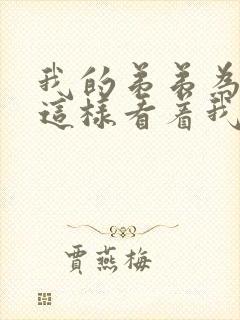 我的弟弟為
這樣看着我
賈燕梅